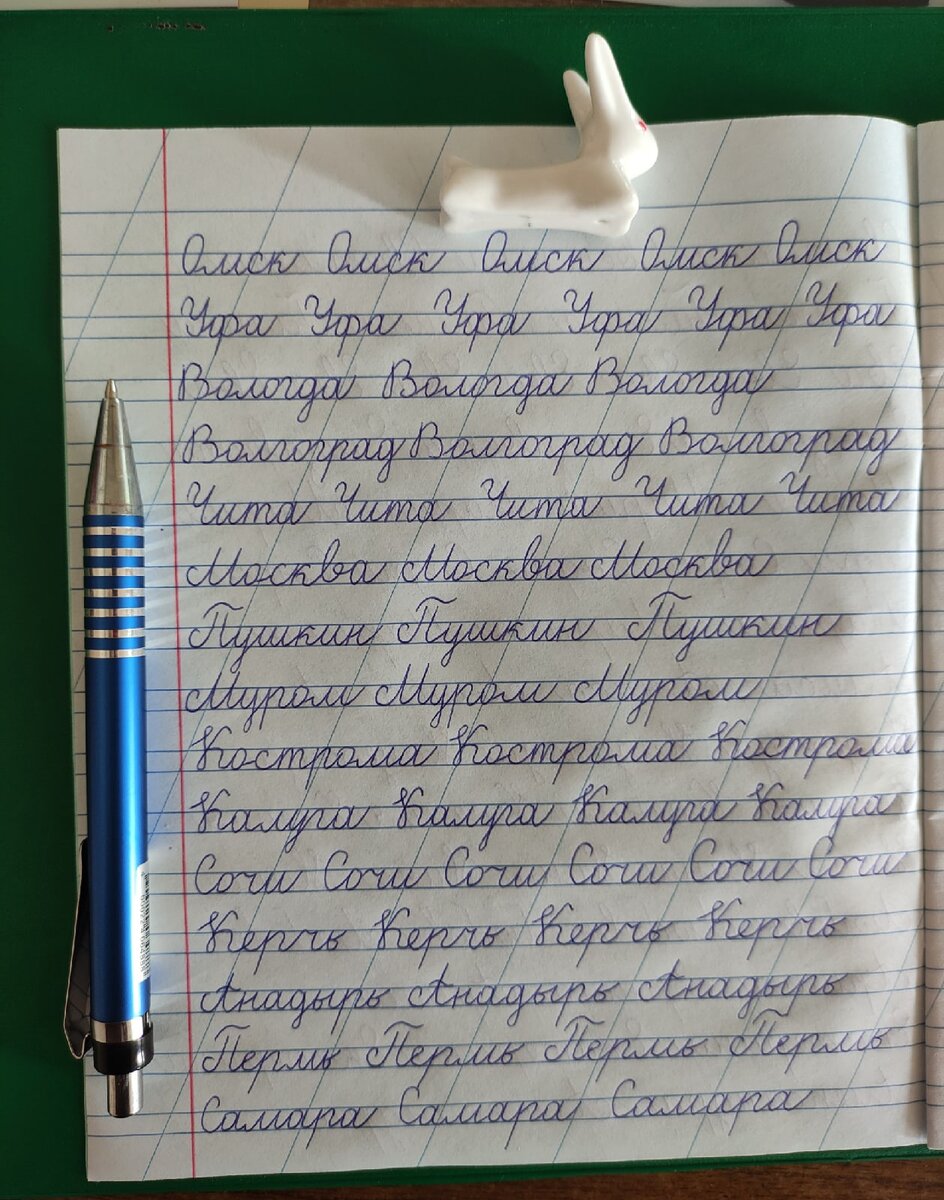 Омск Омск Омск Омск Омск
Уфа Уфа Уфа Уфа Уфа Уфа
Вологда Вологда Вологда
Волгоград Волгоград Волгоград
Чита Чита Чита Чита Чита
Москва Москва Москва
Пушкин Пушкин Пушкин
Муром Муром Муром
Кострома Кострома Кострома
Калуга Калуга Калуга Калуга
Сочи Сочи Сочи Сочи Сочи Сочи
Керчь Керчь Керчь Керчь
Анадырь Анадырь Анадырь
Пермь Пермь Пермь Пермь
Самара Самара Самара